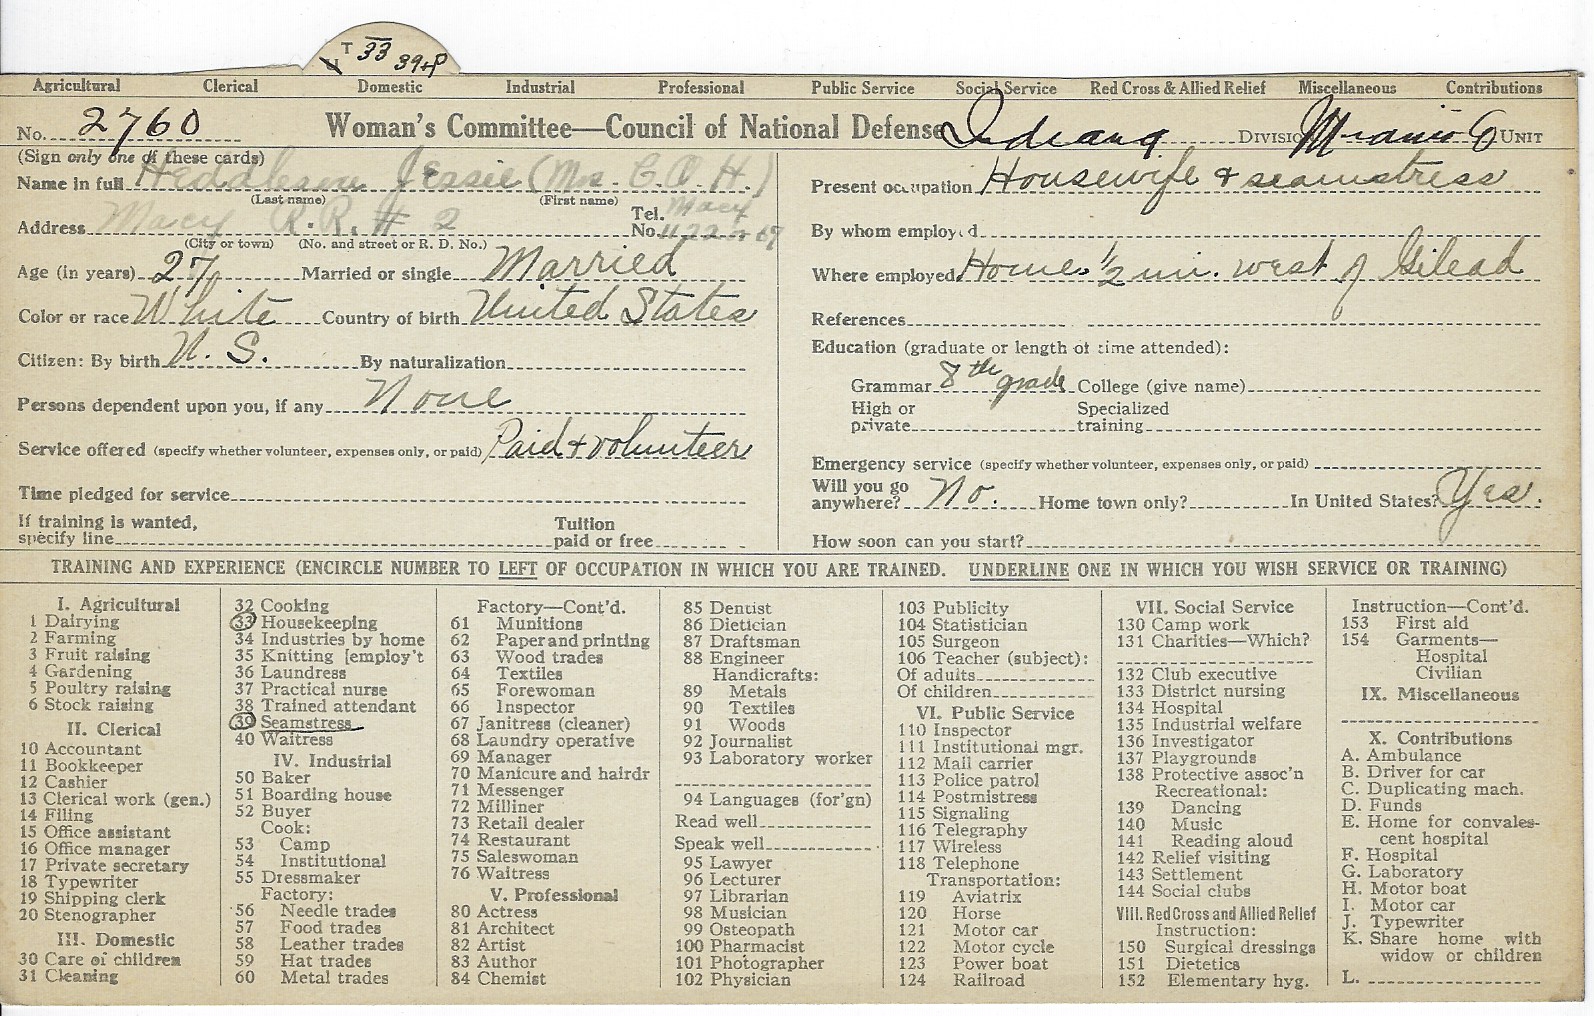 T 33 39
Agricultural Clerical Domestic Industrial Professional Public Service Social Service Red Cross & Allied Relief Miscellaneous Contributions
No. 2760 Woman's Committee—Council of National Defense Indiana DIVISION Miami Co UNIT
(Sign only one of these cards)
Name in full Jessie (Mrs. C. O. H.)
(Last name) (First name)
Address Macy R.R. # 2 Tel. No. Macy
(City or town) (No. and street or R. D. No.)
Age (in years) 27 Married or single Married
Color or race White Country of birth United States
Citizen: By birth U. S. By naturalization
Persons dependent upon you, if any None
Service offered (specify whether volunteer, expenses only, or paid) Paid + volunteer
Time pledged for service
If training is wanted, specify line Tuition paid or free
Present occupation Housewife & seamstress
By whom employed
Where employed Home. 1/2 mi. west of Gilead
References
Education (graduate or length of time attended):
Grammar 8th grade College (give name)
High or private Specialized training
Emergency service (specify whether volunteer, expenses only, or paid)
Will you go anywhere? No. Home town only? In United States? Yes.
How soon can you start?
TRAINING AND EXPERIENCE (ENCIRCLE NUMBER TO LEFT OF OCCUPATION IN WHICH YOU ARE TRAINED. UNDERLINE ONE IN WHICH YOU WISH SERVICE OR TRAINING)
I. Agricultural
1 Dairying
2 Farming
3 Fruit raising
4 Gardening
5 Poultry raising
6 Stock raising
II. Clerical
10 Accountant
11 Bookkeeper
12 Cashier
13 Clerical work (gen.)
14 Filing
15 Office assistant
16 Office manager
17 Private secretary
18 Typewriter
19 Shipping clerk
20 Stenographer
III. Domestic
30 Care of children
31 Cleaning
32 Cooking
33 Housekeeping
34 Industries by home
35 Knitting [employ't
36 Laundress
37 Practical nurse
38 Trained attendant
39 Seamstress
40 Waitress
IV. Industrial
50 Baker
51 Boarding house
52 Buyer
Cook:
53 Camp
54 Institutional
55 Dressmaker
Factory:
56 Needle trades
57 Food trades
58 Leather trades
59 Hat trades
60 Metal trades
Factory—Cont'd.
61 Munitions
62 Paper and printing
63 Wood trades
64 Textiles
65 Forewoman
66 Inspector
67 Janitress (cleaner)
68 Laundry operative
69 Manager
70 Manicure and hairdr
71 Messenger
72 Milliner
73 Retail dealer
74 Restaurant
75 Saleswoman
76 Waitress
V. Professional
80 Actress
81 Architect
82 Artist
83 Author
84 Chemist
85 Dentist
86 Dietician
87 Draftsman
88 Engineer
Handicrafts:
89 Metals
90 Textiles
91 Woods
92 Journalist
93 Laboratory worker
94 Languages (for'gn)
Read well
Speak well
95 Lawyer
96 Lecturer
97 Librarian
98 Musician
99 Osteopath
100 Pharmacist
101 Photographer
102 Physician
103 Publicity
104 Statistician
105 Surgeon
106 Teacher (subject):
Of adults
Of children
VI. Public Service
110 Inspector
111 Institutional mgr.
112 Mail carrier
113 Police patrol
114 Postmistress
115 Signaling
116 Telegraphy
117 Wireless
118 Telephone
Transportation:
119 Aviatrix
120 Horse
121 Motor car
122 Motor cycle
123 Power boat
124 Railroad
VII. Social Service
130 Camp work
131 Charities—Which?
132 Club executive
133 District nursing
134 Hospital
135 Industrial welfare
136 Investigator
137 Playgrounds
138 Protective assoc'n
Recreational:
139 Dancing
140 Music
141 Reading aloud
142 Relief visiting
143 Settlement
144 Social clubs
VIII. Red Cross and Allied Relief
Instruction:
150 Surgical dressings
151 Dietetics
152 Elementary hyg.
Instruction—Cont'd.
153 First aid
154 Garments—
Hospital
Civilian
IX. Miscellaneous
X. Contributions
A. Ambulance
B. Driver for car
C. Duplicating mach.
D. Funds
E. Home for convales-
cent hospital
F. Hospital
G. Laboratory
H. Motor boat
I. Motor car
J. Typewriter
K. Share home with
widow or children
L.